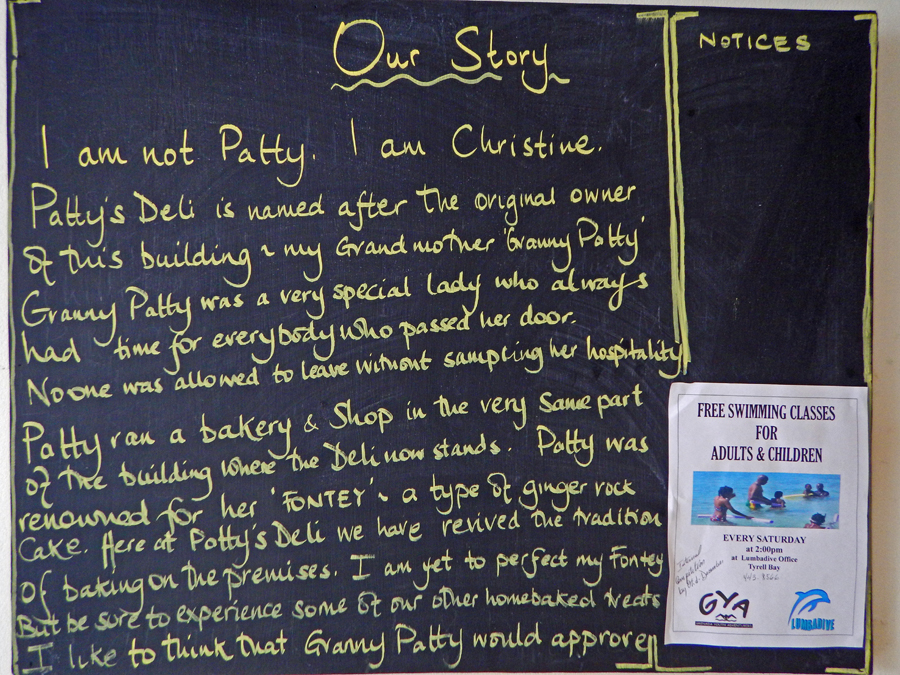 Our Story
I am not Patty. I am Christine.
Patty's Deli is named after the original owner
of this building ~ my Grandmother 'Granny Patty'
Granny Patty was a very special lady who always
had time for everybody who passed her door.
No one was allowed to leave without sampling her hospitality
Patty ran a bakery & Shop in the very same part
of the building where the Deli now stands. Patty was
renowned for her 'FONTEY' ~ a type of ginger rock
cake. Here at Patty's Deli we have revived the tradition
of baking on the premises. I am yet to perfect my Fontey
But be sure to experience some of our other homebaked treats
I like to think that Granny Patty would approve
NOTICES
FREE SWIMMING CLASSES
FOR
ADULTS & CHILDREN
EVERY SATURDAY
at 2:00pm
at Lumbadive Office
Tyrell Bay
443 8566
GYA
LUMBADIVE